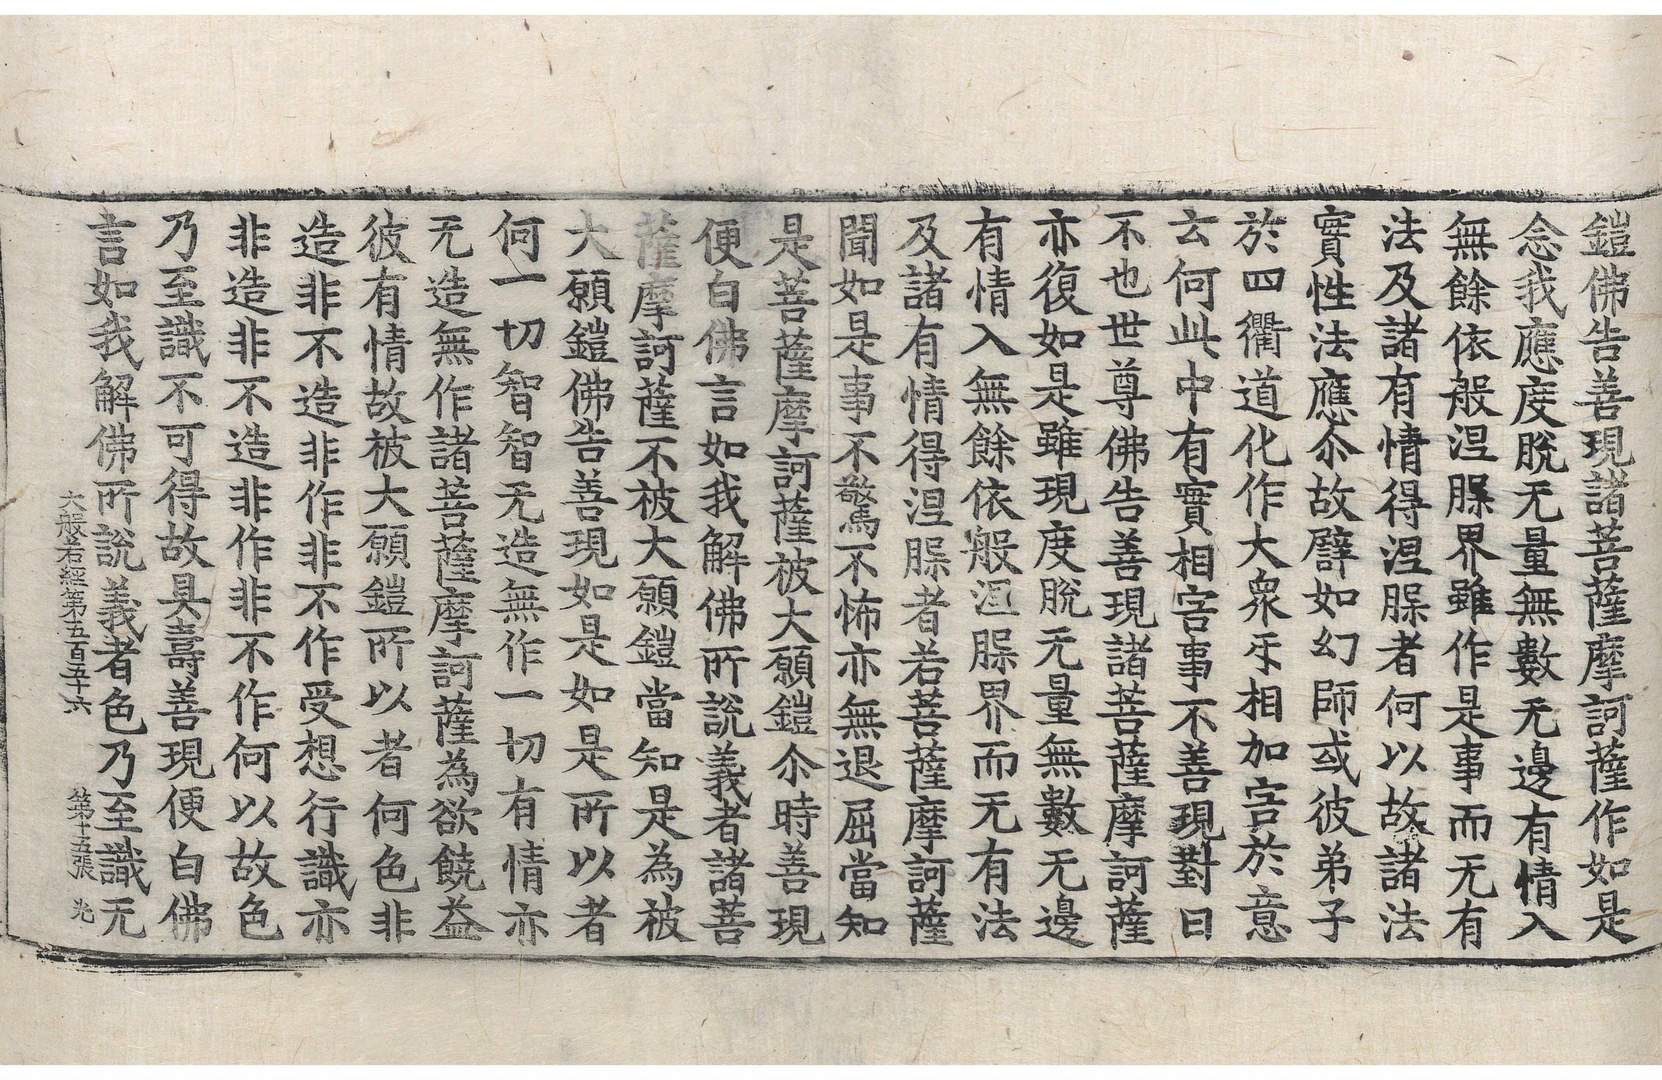 鎧佛告善現諸菩薩摩訶薩作如是
念我應度脫无量無數无邊有情入
無餘依般涅槃界雖作是事而无有
法及諸有情得涅槃者何以故諸法
實性法應尒故譬如幻師或彼弟子
於四衢道化作大衆互相加害於意
云何此中有實相害事不善現對曰
不也世尊佛告善現諸菩薩摩訶薩
亦復如是雖現度脫无量無數无邊
有情入無餘依般涅槃界而无有法
及諸有情得涅槃者若菩薩摩訶薩
聞如是事不驚不怖亦無退屈當知
是菩薩摩訶薩被大願鎧尒時善現
便白佛言如我解佛所說義者諸菩
薩摩訶薩不被大願鎧當知是為被
大願鎧佛告善現如是如是所以者
何一切智智无造無作一切有情亦
无造無作諸菩薩摩訶薩為欲饒益
彼有情故被大願鎧所以者何色非
造非不造非作非不作受想行識亦
非造非不造非作非不作何以故色
乃至識不可得故具壽善現便白佛
言如我解佛所說義者色乃至識无
大般若經第五百五十六 第十五張 光